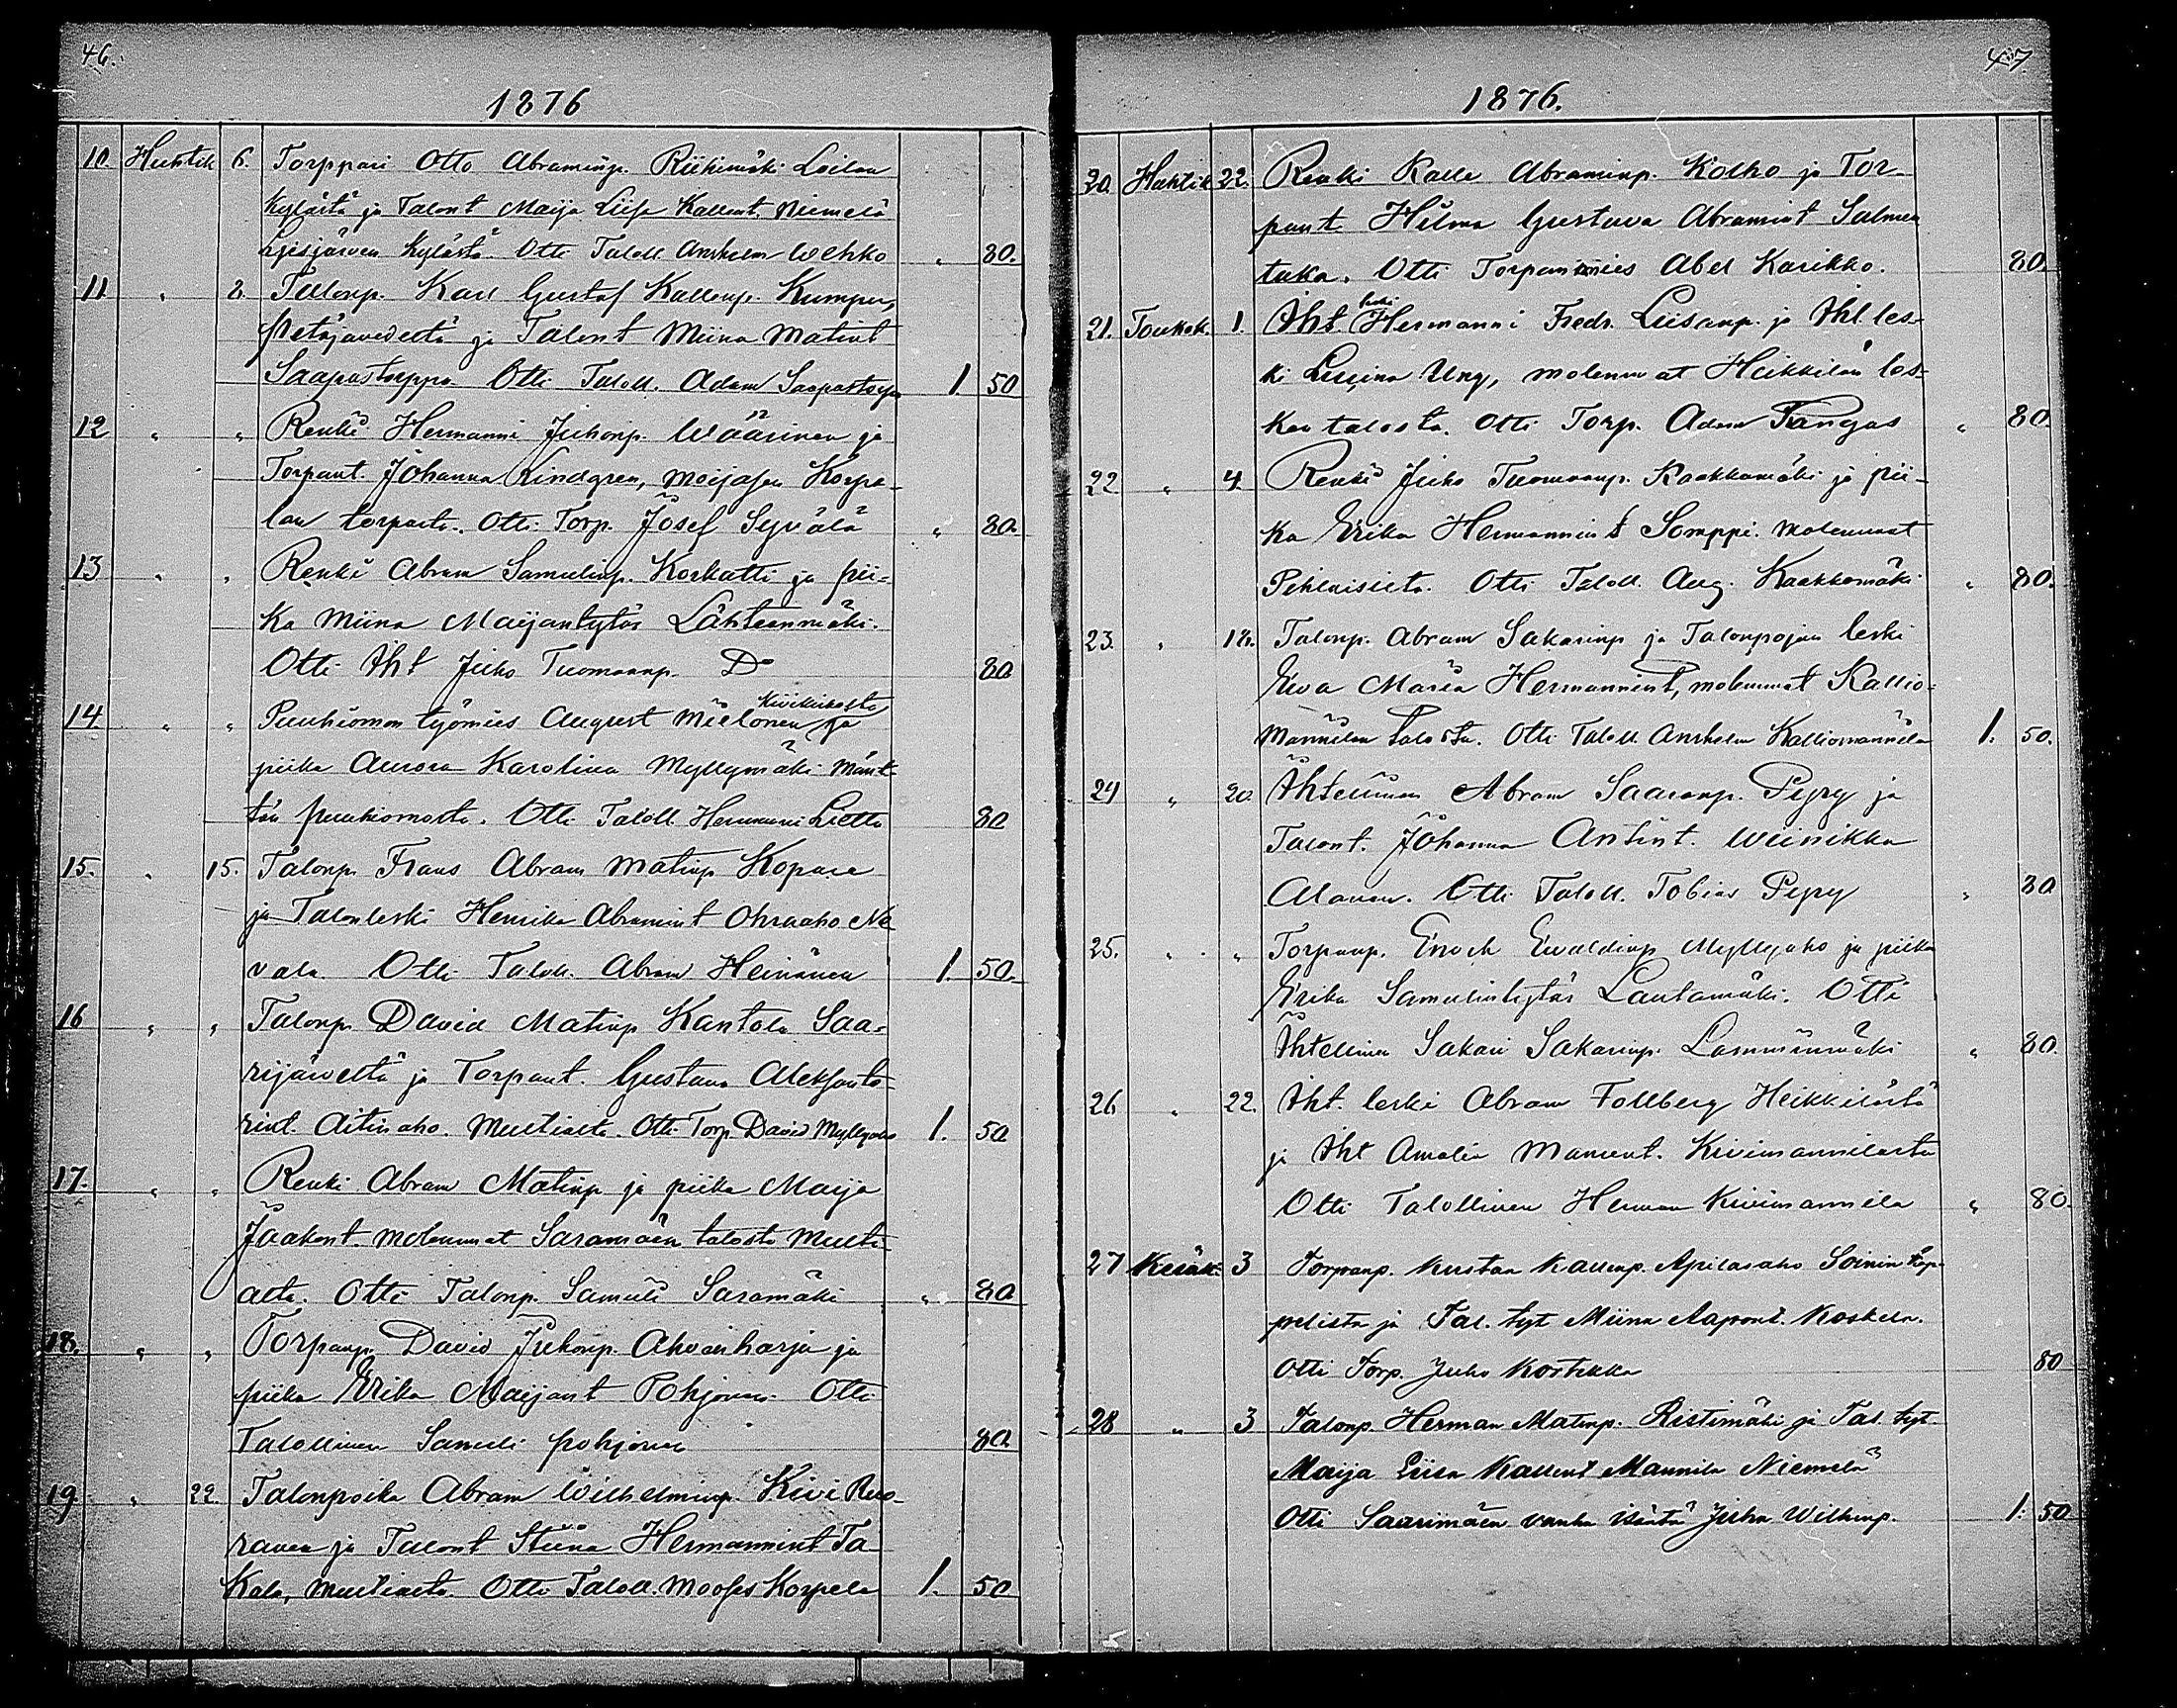 46.
1876
10. Huhtik 6. Torppari Otto Abraminp. Riihimäki Loilan
kylästä ja Talont Maija Liisa Kallent. Niemelä
kylästä Otti Taloll. Anshelm Wehko " 80.
11 " 8. Talonp. Karl Gustaf Kallenp. Kumpu,
Petäjävedeltä ja Talont Miina Matint
Saapastoppa Otti Taloll. Adam 1. 50
12 " " Renki Hermanni Juhonp. Wäärinen ja
Torpant. Johanna Lindgren, Korpe-
lan torpasta. Otti Torp. Josef Syvälä " 80.
13 " " Renki Abram Samulinp. Korkatti ja pii-
ka Miina Maijantytär Lähteenmäki.
Otti Iht Juho Tuomaanp. Do 80
14 " " Puuhiomon työmies August Mielonen Kivikirkosta ja
piika Aurora Karolina Myllymäki Mänt-
tän puuhiomosta. Otti Taloll. Hermanni Lietto 80
15. " 15. Talonp. Frans Abram Matinp Kopare
ja Talonleski Henrika Abramint Ohraaho Ne
vala. Otti Taloll. Abram Heinänen 1. 50.
16 " " Talonp. David Matinp Kantola Saa-
rijäweltä ja Torpant. Gustava Aleksante-
rint. Aitinaho. Multialta. Otti Torp David Myllyaho 1. 50
17. " " Renki Abram Matinp ja piika Maija
Jaakont. molemmat Saramäen talosta Multi-
alta. Otti Talonp. Samuli Saramäki " 80
18. " " Torpanp. David Juhonp. Ahvenharja ja
piika Erika Maijant Pohjonen Otti
Talollinen Samuli pohjonen 80.
19 " 22. Talonpoika Abram Wilhelminp. Kivi
ja Talont Stiina Hermannint Ta
Kala, Multialta. Otti Taloll. Mooses Korpela 1. 50
47.
1876.
20. Huhtik 22. Renki Kalle Abraminp. Kolho ja Tor-
pant Hilma Gustava Abramint Salmen
taka. Otti Torpanmies Abel Karikko. 80.
21. Toukok. 1. Iht. leski Hermanni Fredr. Liisanp. ja Iht. les-
ki Ung, molemmat Heikkilän les-
ken talosta. Otti Torp. Adam Kangas " 80.
22 " 4. Renki Juho Tuomaanp. Kaakkomäki ja pii-
ka Erika Hermannint Somppi. molemmat
Pihlaisista. Otti Taloll. Aug. Kaakkomäki " 80.
23. " 18. Talonp. Abram Sakarinp ja Talonpojan leski
Eeva Maria Hermannint, molemmat Kallio-
männilän talosta. Otti Taloll. Anshelm Kalliomännilä 1. 50.
24 " 20. Ihtellinen Abram Saaranp. Pyry ja
Talont. Johanna Antint. Wiinikka
Alanen. Otti Taloll. Tobias Pyry " 80
25. " " Torpanp. Enoch Ewaldinp Myllyaho ja piika
Erika Samulintytär Lautamäki. Otti
Ihtellinen Sakari Sakarinp. Lamminmäki " 80.
26 " 22. Iht. leski Abram Follberg Heikkilästä
ja Iht Amalia Manuent. Kivimannilasta
Otti Talollinen Herman Kivimannila " 80.
27 Kesäk. 3 Torpanp. Kustaa Kallenp. Apilasaho Soinin kap-
pelista ja Tal. tyt Miina Aapont. Koskela.
Otti Torp. Juho Kortikka 80
28 " 3 Talonp. Herman Matinp. Ristimäki ja Tal. tyt.
Maija Liisa Kallent Mannila Niemelä
Otti Saarimäen vanha isäntä Juha Wilhmp. 1. 50